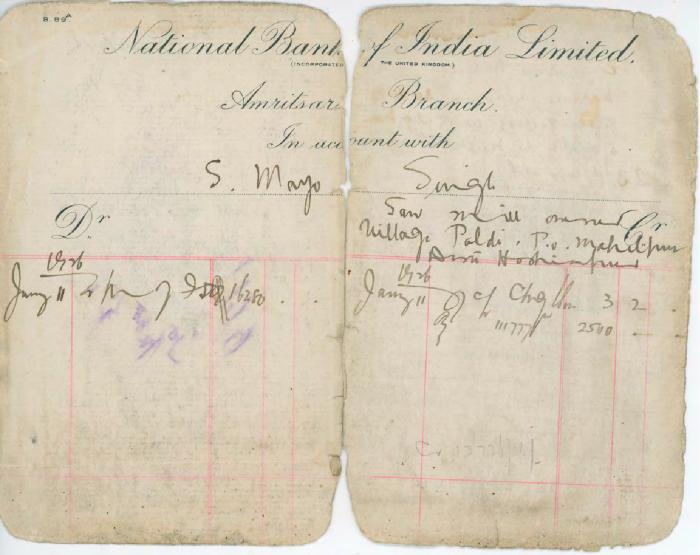 B. 89A
National Bank of India Limited.
(INCORPORATED THE UNITED KINGDOM.)
Amritsar Branch.
In account with
S. Mayo Singh
Saw mill owner
Village Paldi. P.o. Mahilpur
Distt Hoshiarpur
Dr Cr
1926
Jany 11 16250
1926
Jany 11 3 2
2500